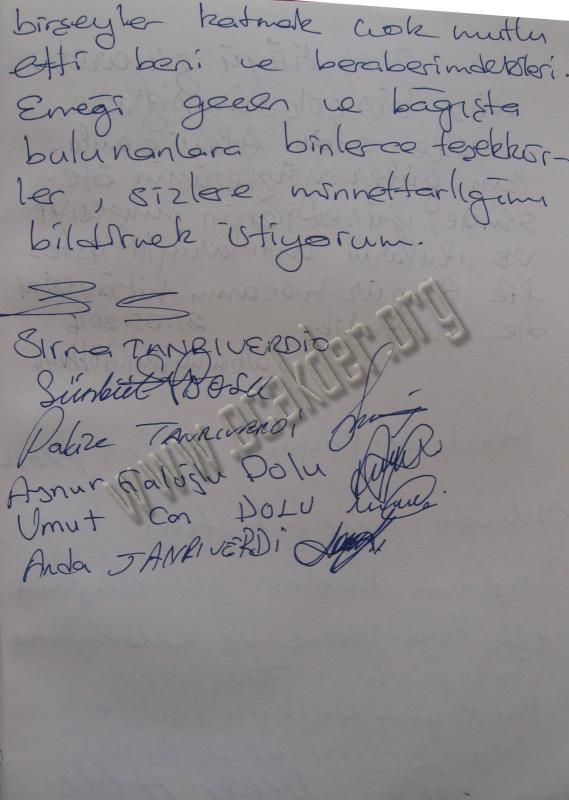 birşeyler katmak çok mutlu
etti beni ve beraberimdekileri.
Emeği geçen ve bağışta
bulunanlara binlerce teşekkür-
ler, sizlere minnettarlığımı
bildirmek istiyorum.
Sırma TANRIVERDİ
Sünbül DOLU
Pakize TANRIVERDİ
Aynur Dolu
Umut Can DOLU
Arda TANRIVERDİ
www.ocakder.org